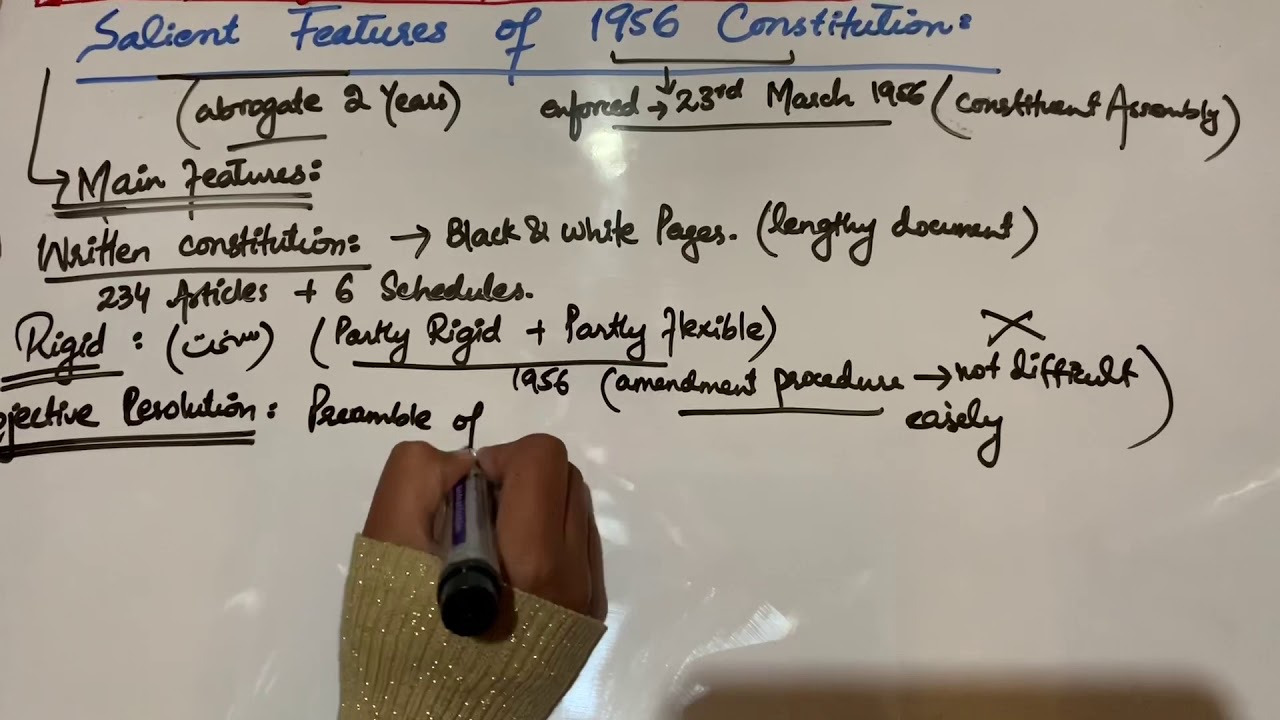 Salient Features of 1956 Constitution:
(abrogate 2 Years) enforced → 23rd March 1956 (constituent Assembly)
Main Features:
Written constitution: → Black & white Pages. (lengthy document)
234 Articles + 6 Schedules.
Rigid : (سخت) (Partly Rigid + Partly flexible)
1956 (amendment procedure → not difficult
easely)
ojective Resolution: Preamble of